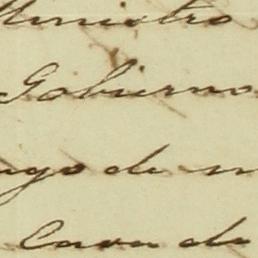 Ministro
Gobierno
de
Casa de